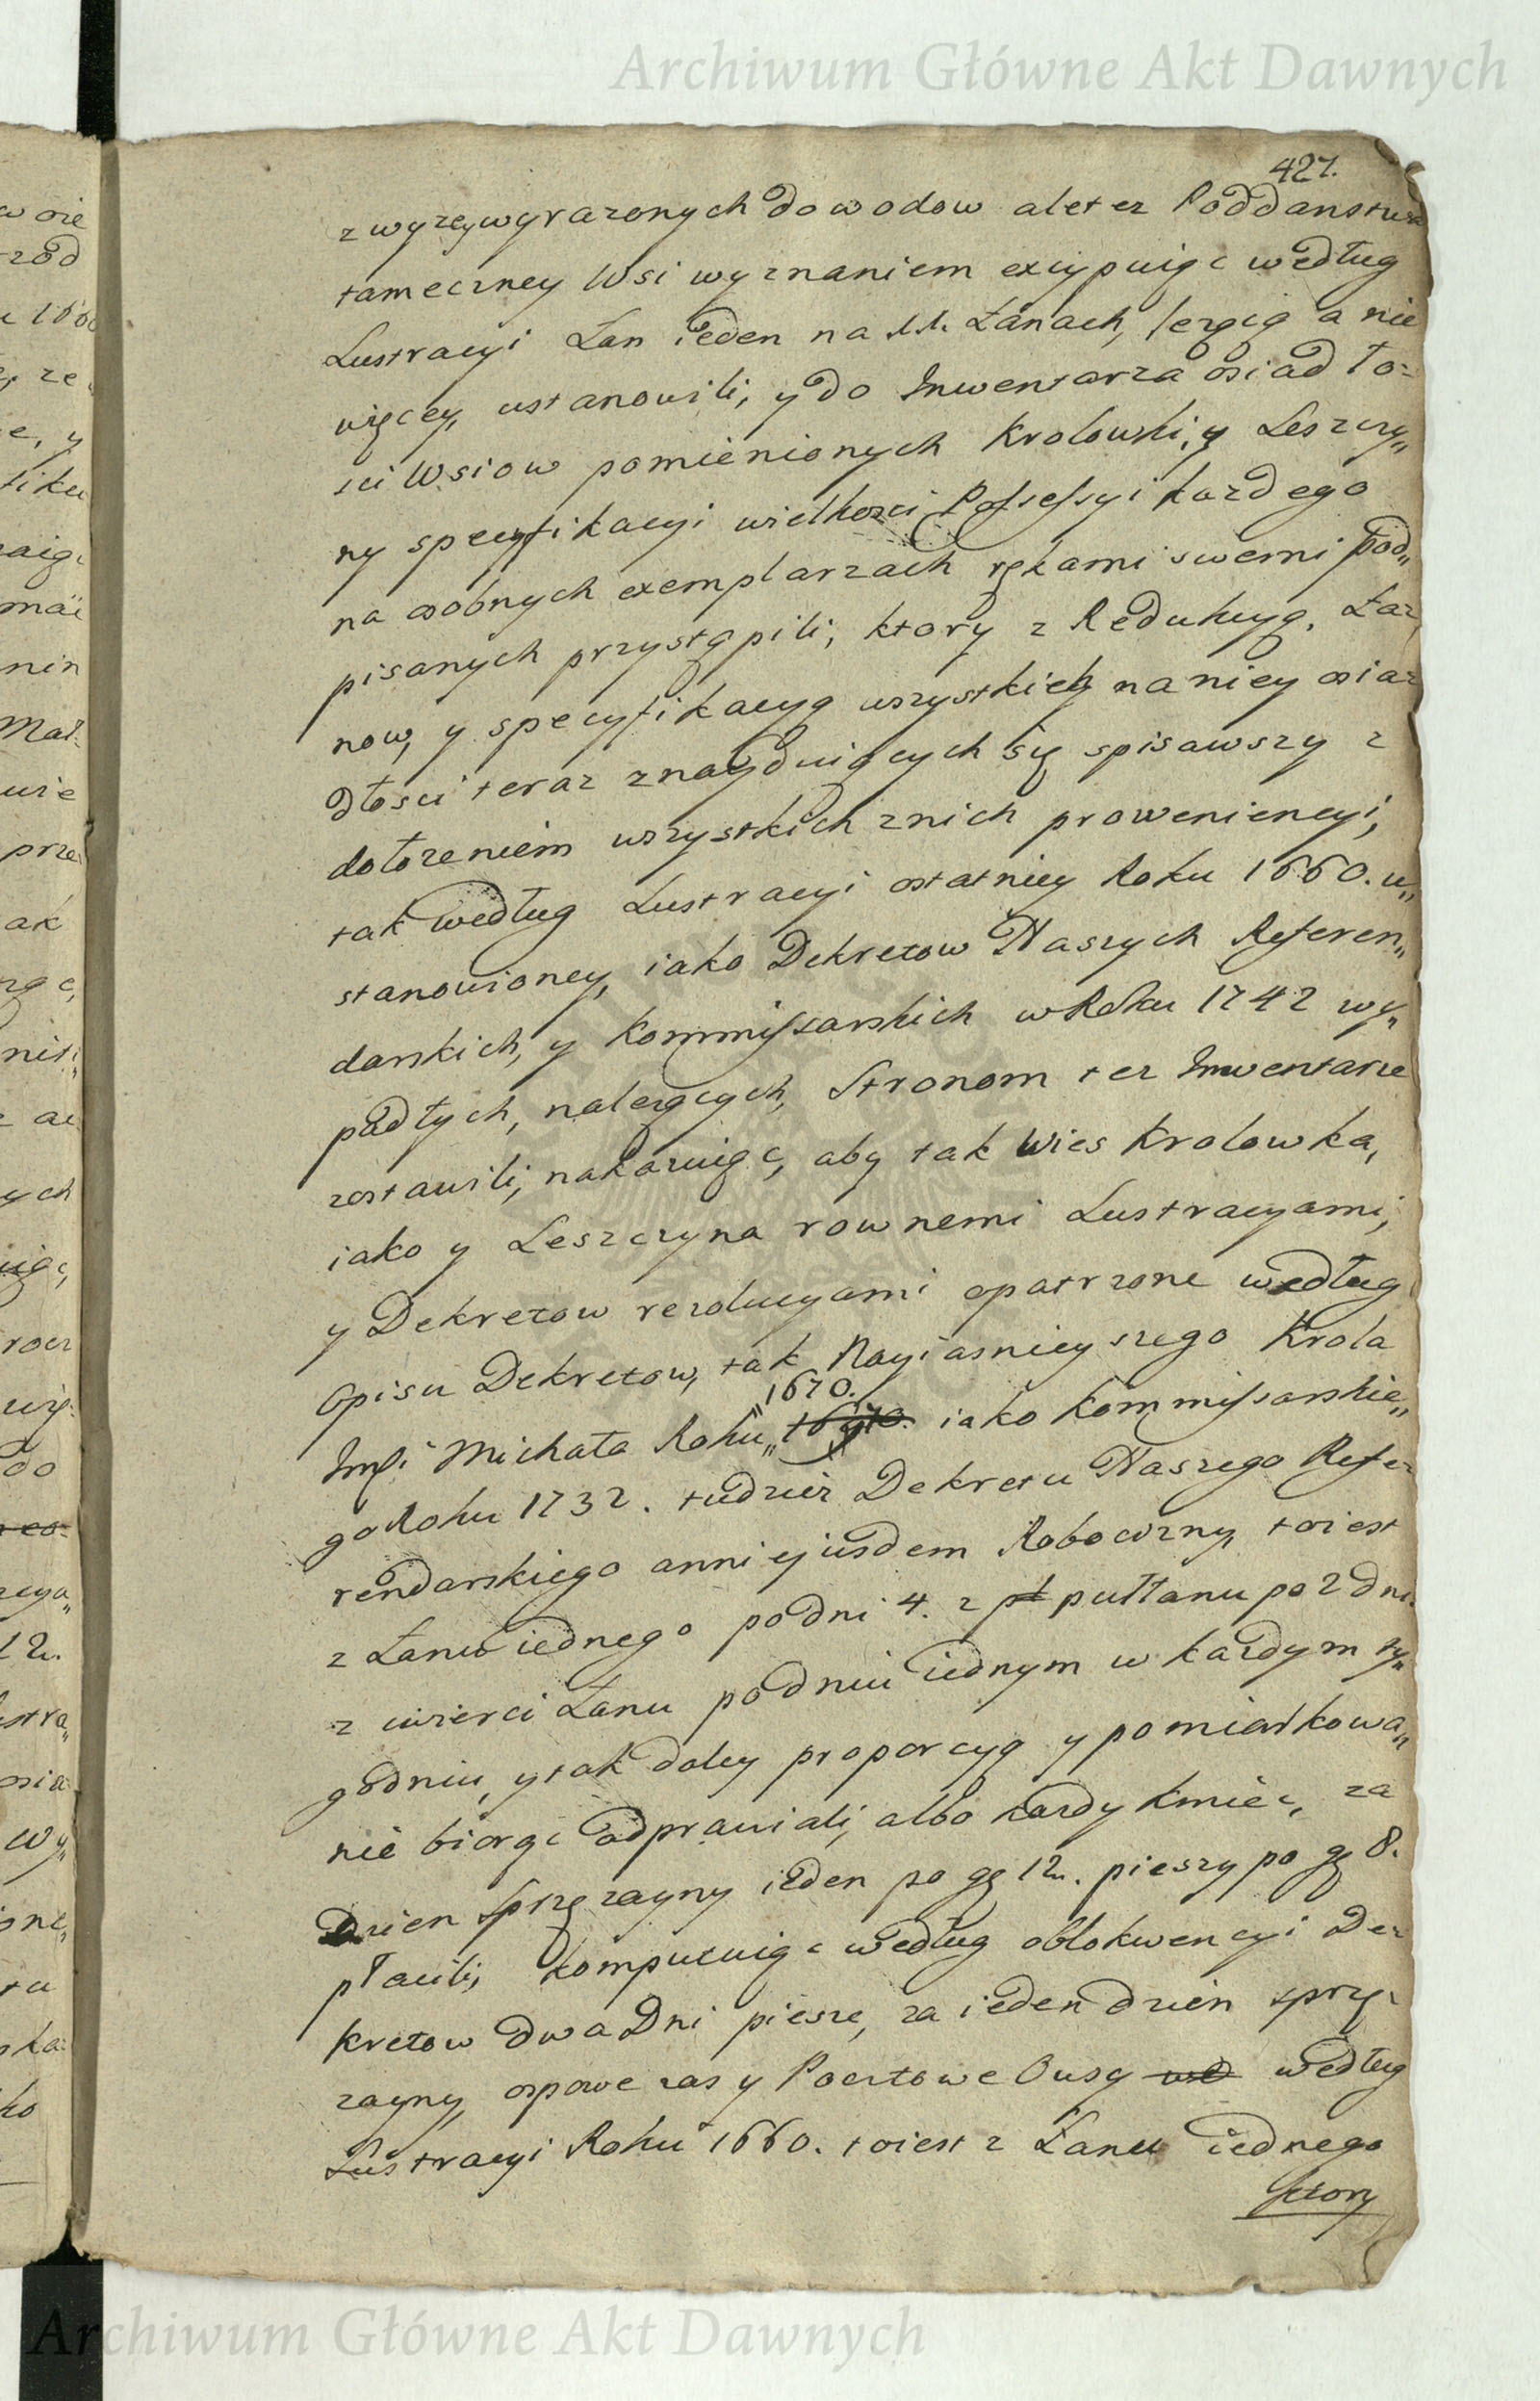 Archiwum Główne Akt Dawnych
427.
z wyzeywyrazonych dowodow ale tez Poddanstwa
tameczney Wsi wyznaniem excypuiąc według
Lustracyi Łan ieden na 11. Łanach, leząią a nie
więcey, ustanowili, y do Inwentarza osiadło=
sci Wsiow pomienionych Krolowki, y Leszczy„
ny specyfikacyi wielkosci Possessyi kazdego
na osobnych exemplarzach rękami swemi pod„
pisanych przystąpili, ktory z Redukcyą, Ła=
now, y specyfikacyą wszystkich na niey osia=
dłosci teraz znayduiących się spisawszy z
dołozeniem wszystkich znich proweniencyi,
tak według Lustracyi ostatniey Roku 1660. u„
stanowioney, iako Dekretow Naszych Referen„
darskich, y Kommissarskich w Roku 1742 wy„
padłych, nalezących, Stronom tez Inwentarze
zostawili, nakazuiąc, aby tak Wies Krolowka,
iako y Leszczyna rownemi Lustracyami,
y Dekretow rezolucyami opatrzone według
Opisu Dekretow, tak Nayiasnieyszego Krola
„1670.
Imsi Michała Roku„ iako Kommissarskie„
go Roku 1732. tudziez Dekretu Naszego Refe=
rendarskiego anni ejusdem Robocizny, toiest
z Łanu iednego po dni 4. z pł pułłanu po 2 dni
z cwierci Łanu po dniu iednym w kazdym ty„
godniu, y tak daley proporcyą y pomiarkowa„
nie biorąc odprawiali, albo kazdy kmiec, za
Dzien sprzęzayny ieden po gę 12. pieszy po gę 8.
płacili, komputuiąc według oblokwencyi De=
kretow dwa Dni piesze, za ieden dzien sprzę=
zayny, ospowe zas y Pocztowe Ousy we według
Lustracyi Roku 1660. toiest z Łanu iednego
ktory
Archiwum Główne Akt Dawnych